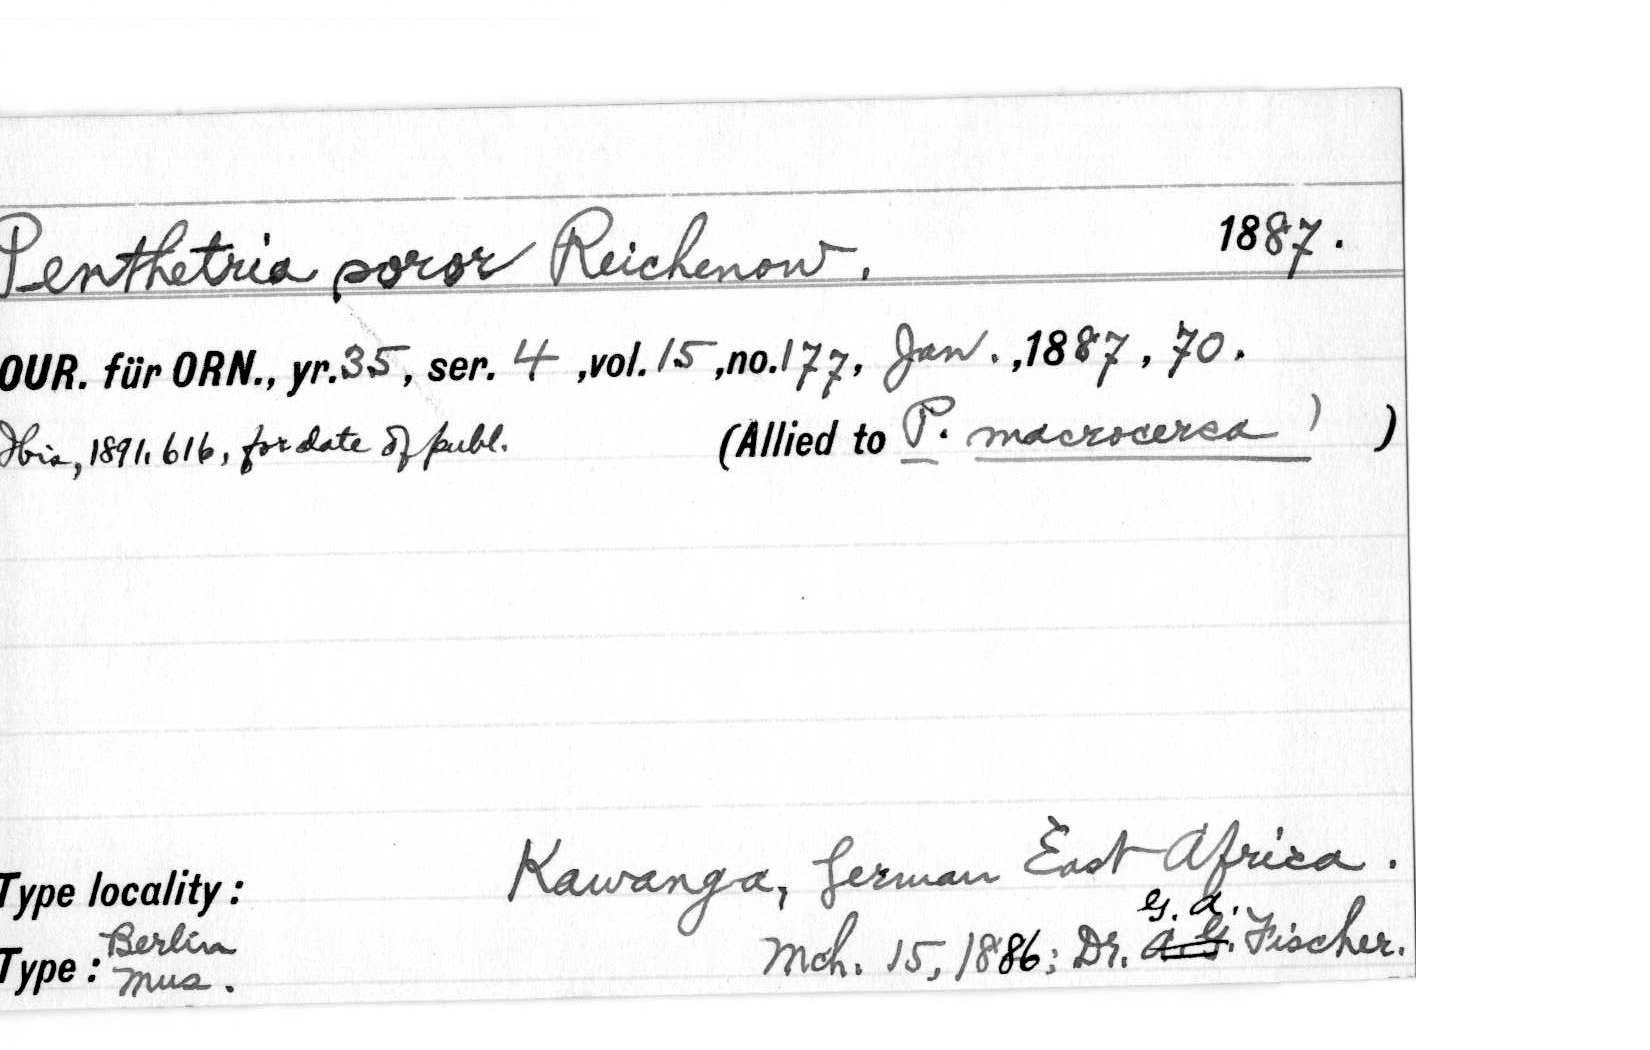 Penthetria soror Reichenow. 1887.
OUR. für ORN., yr. 35, ser. 4, vol. 15, no. 177, Jan., 1887, 70.
Ibis, 1891, 616, for date of publ. (Allied to P. macrocerca) )
Kawanga, German East Africa.
Type locality:
G. A.
Mch. 15, 1886; Dr. A. G. Fischer.
Berlin
Type: Mus.